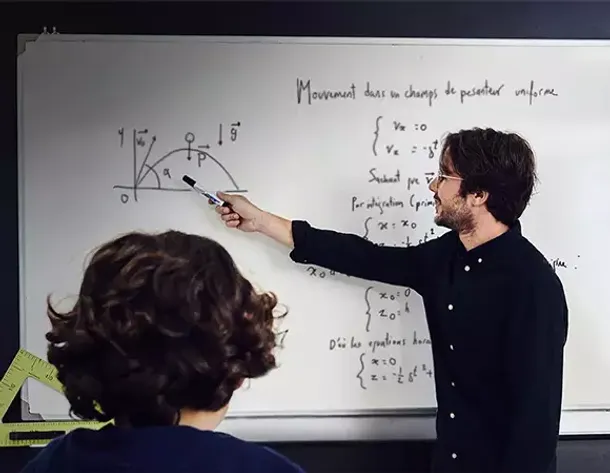 Mouvement dans un champs de pesanteur uniforme
y
v₀
g
P
α
O
{ vx = 0
vz = -gt
Sachant que v
Par intégration (prim
{ x = x₀
x₀
{ x₀ = 0
z₀ = h
D'où les equations hora
{ x = 0
z = -1/2 gt² +